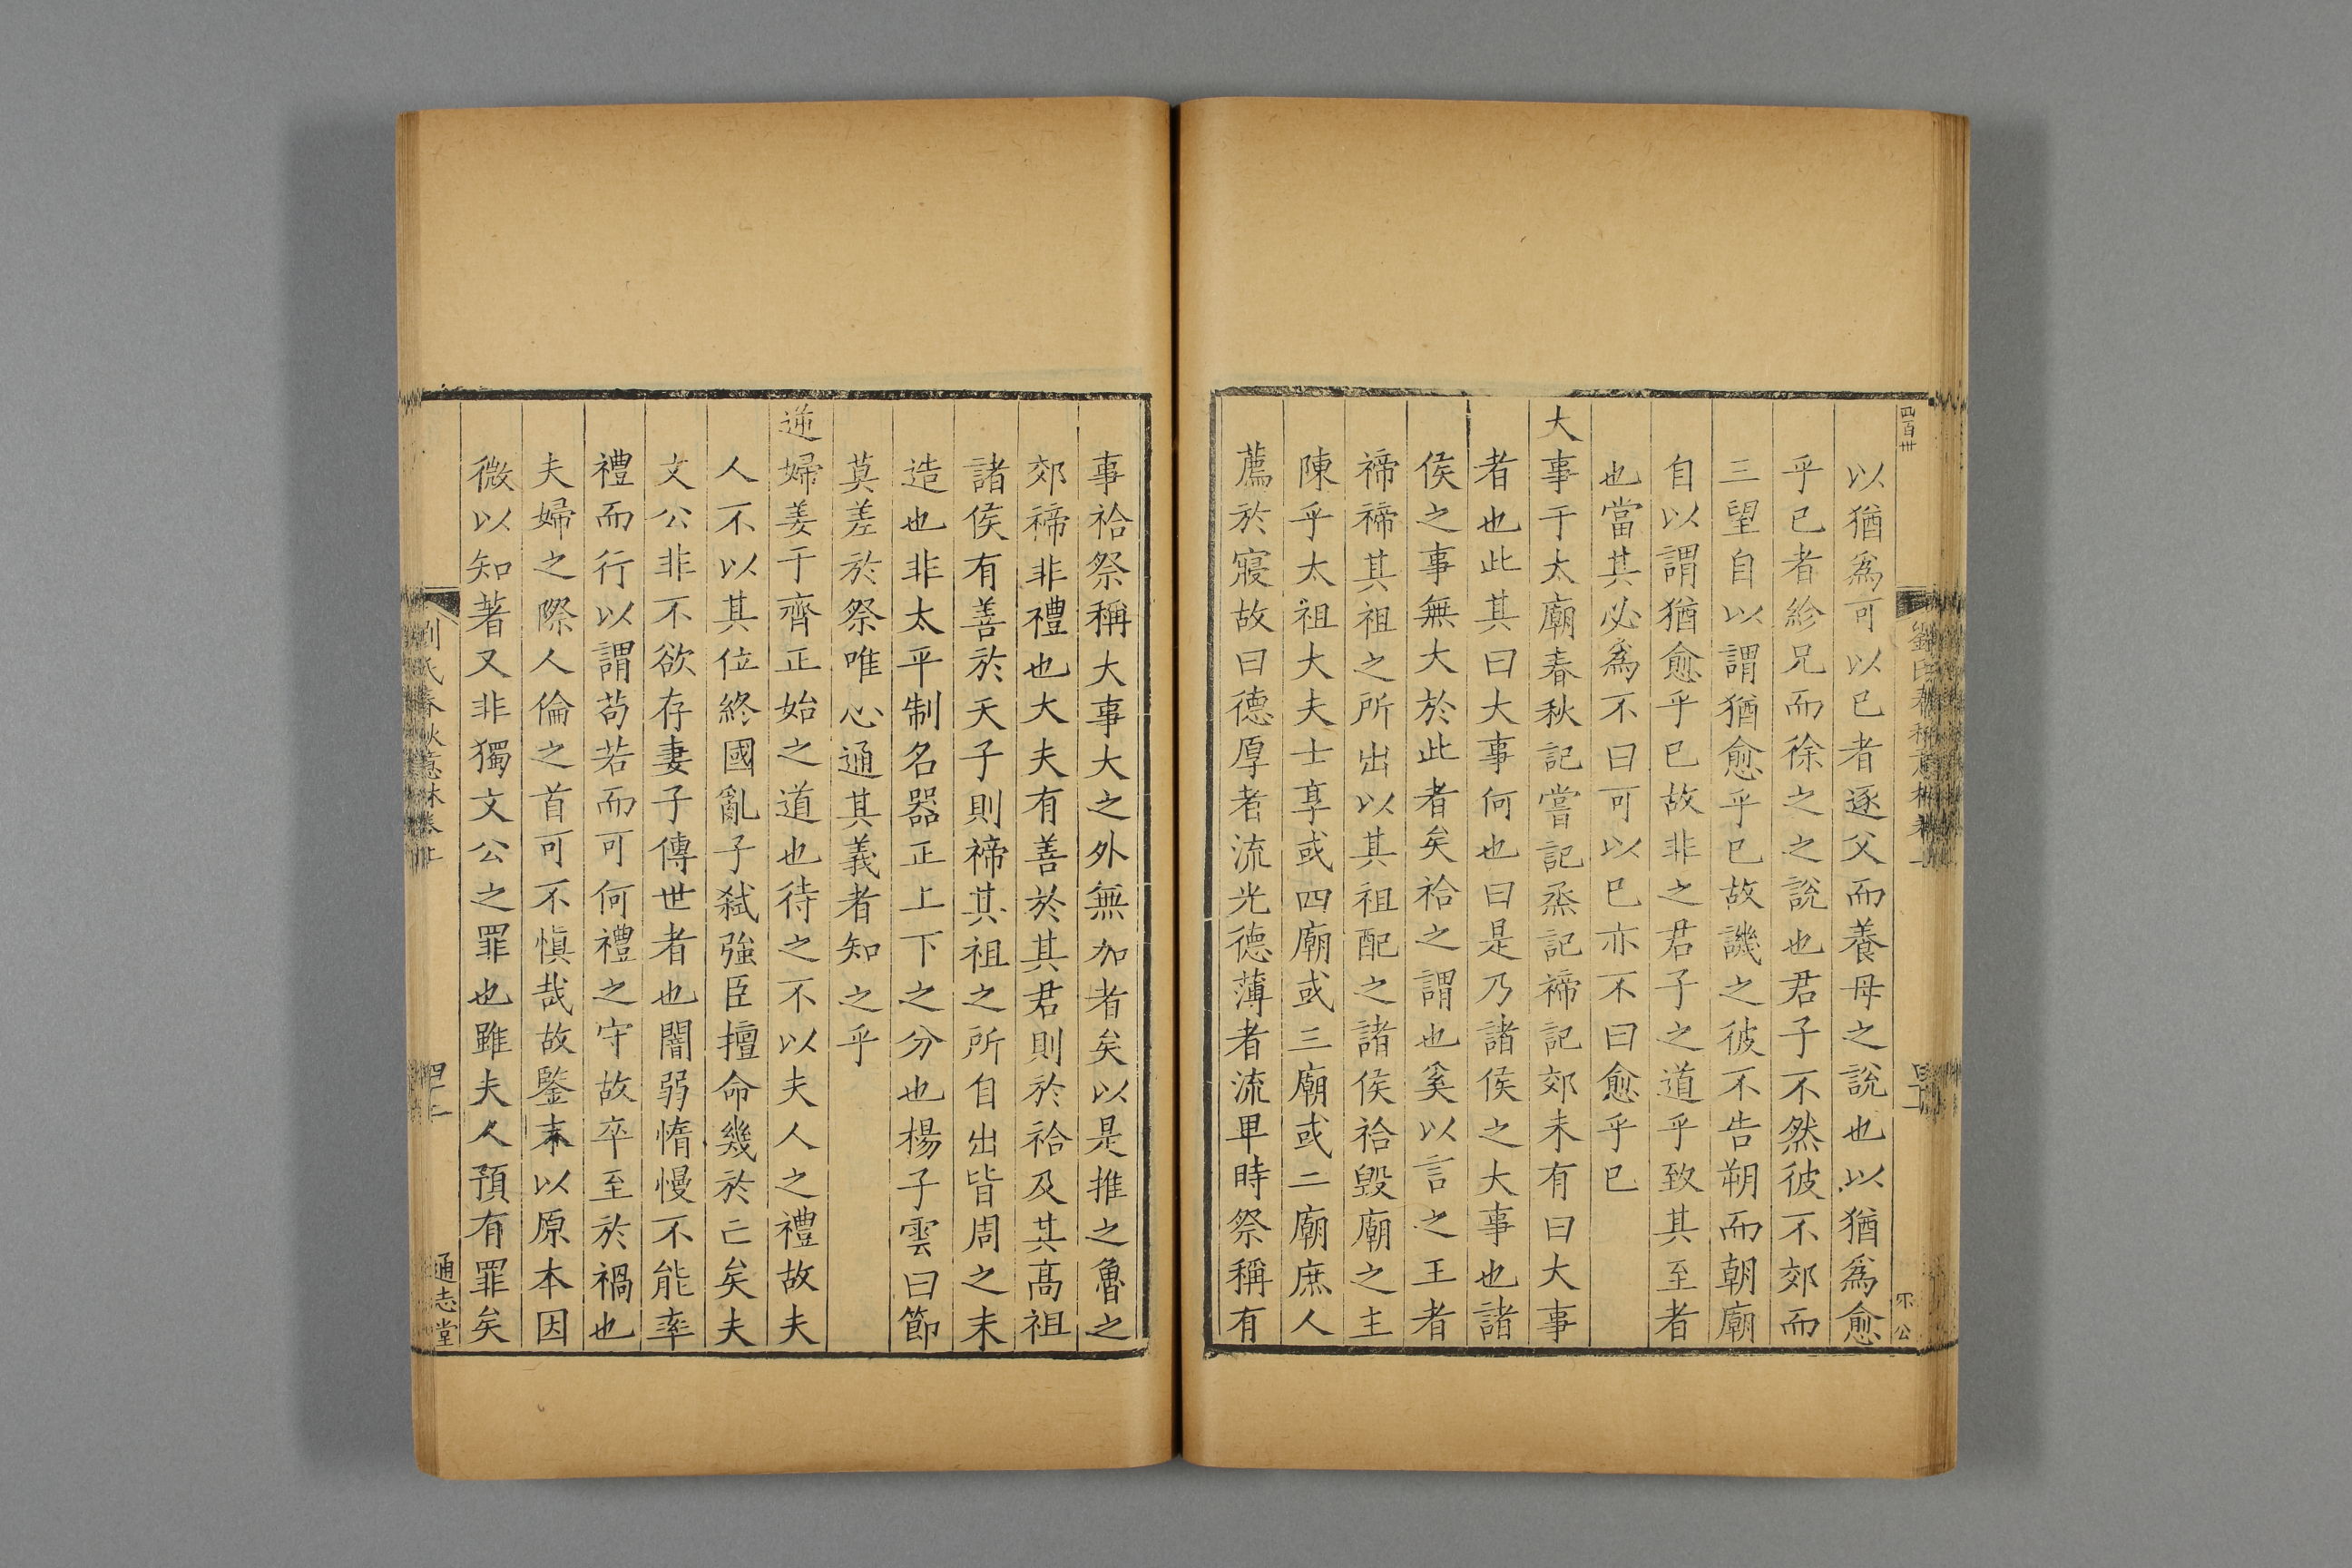 四百廿
以猶爲可以已者逐父而養母之說也以猶爲愈
乎已者紾兄而徐之之說也君子不然彼不郊而
三望自以謂猶愈乎已故譏之彼不告朔而朝廟
自以謂猶愈乎已故非之君子之道乎致其至者
也當其必爲不曰可以已亦不曰愈乎已
大事于太廟春秋記嘗記烝記禘記郊未有曰大事
者也此其曰大事何也曰是乃諸侯之大事也諸
侯之事無大於此者矣祫之謂也奚以言之王者
禘禘其祖之所出以其祖配之諸侯祫毀廟之主
陳乎太祖大夫士享或四廟或三廟或二廟庶人
薦於寢故曰德厚者流光德薄者流卑時祭稱有
事祫祭稱大事大之外無加者矣以是推之魯之
郊禘非禮也大夫有善於其君則於祫及其高祖
諸侯有善於天子則禘其祖之所自出皆周之末
造也非太平制名器正上下之分也楊子雲曰節
莫差於祭唯心通其義者知之乎
逆婦姜于齊正始之道也待之不以夫人之禮故夫
人不以其位終國亂子弒強臣擅命幾於亡矣夫
文公非不欲存妻子傳世者也闇弱惰慢不能率
禮而行以謂苟若而可何禮之守故卒至於禍也
夫婦之際人倫之首可不慎哉故鑒末以原本因
微以知著又非獨文公之罪也雖夫人預有罪矣
劉氏春秋意林卷上
通志堂